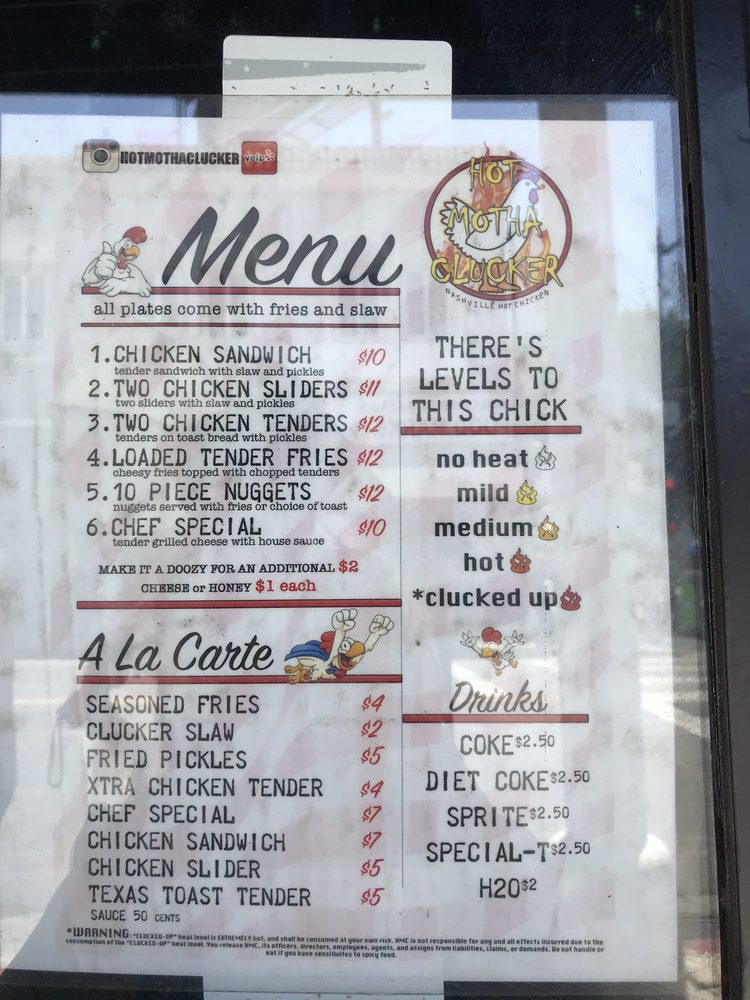 HOTMOTHACLUCKER yelp
HOT
MOTHA
CLUCKER
NASHVILLE HOT CHICKEN
Menu
all plates come with fries and slaw
1.CHICKEN SANDWICH $10
tender sandwich with slaw and pickles
2.TWO CHICKEN SLIDERS $11
two sliders with slaw and pickles
3.TWO CHICKEN TENDERS $12
tenders on toast bread with pickles
4.LOADED TENDER FRIES $12
cheesy fries topped with chopped tenders
5.10 PIECE NUGGETS $12
nuggets served with fries or choice of toast
6.CHEF SPECIAL $10
tender grilled cheese with house sauce
MAKE IT A DOOZY FOR AN ADDITIONAL $2
CHEESE or HONEY $1 each
THERE'S
LEVELS TO
THIS CHICK
no heat
mild
medium
hot
*clucked up
A La Carte
SEASONED FRIES $4
CLUCKER SLAW $2
FRIED PICKLES $5
XTRA CHICKEN TENDER $4
CHEF SPECIAL $7
CHICKEN SANDWICH $7
CHICKEN SLIDER $5
TEXAS TOAST TENDER $5
SAUCE 50 CENTS
Drinks
COKE $2.50
DIET COKE $2.50
SPRITE $2.50
SPECIAL-T $2.50
H20 $2
*WARNING: "CLUCKED-UP" heat level is EXTREMELY hot, and shall be consumed at your own risk. HMC is not responsible for any and all effects incurred due to the
consumption of the "CLUCKED-UP" heat level. You release HMC, its officers, directors, employees, agents, and assigns from liabilities, claims, or demands. Do not handle or
eat if you have sensitivites to spicy food.